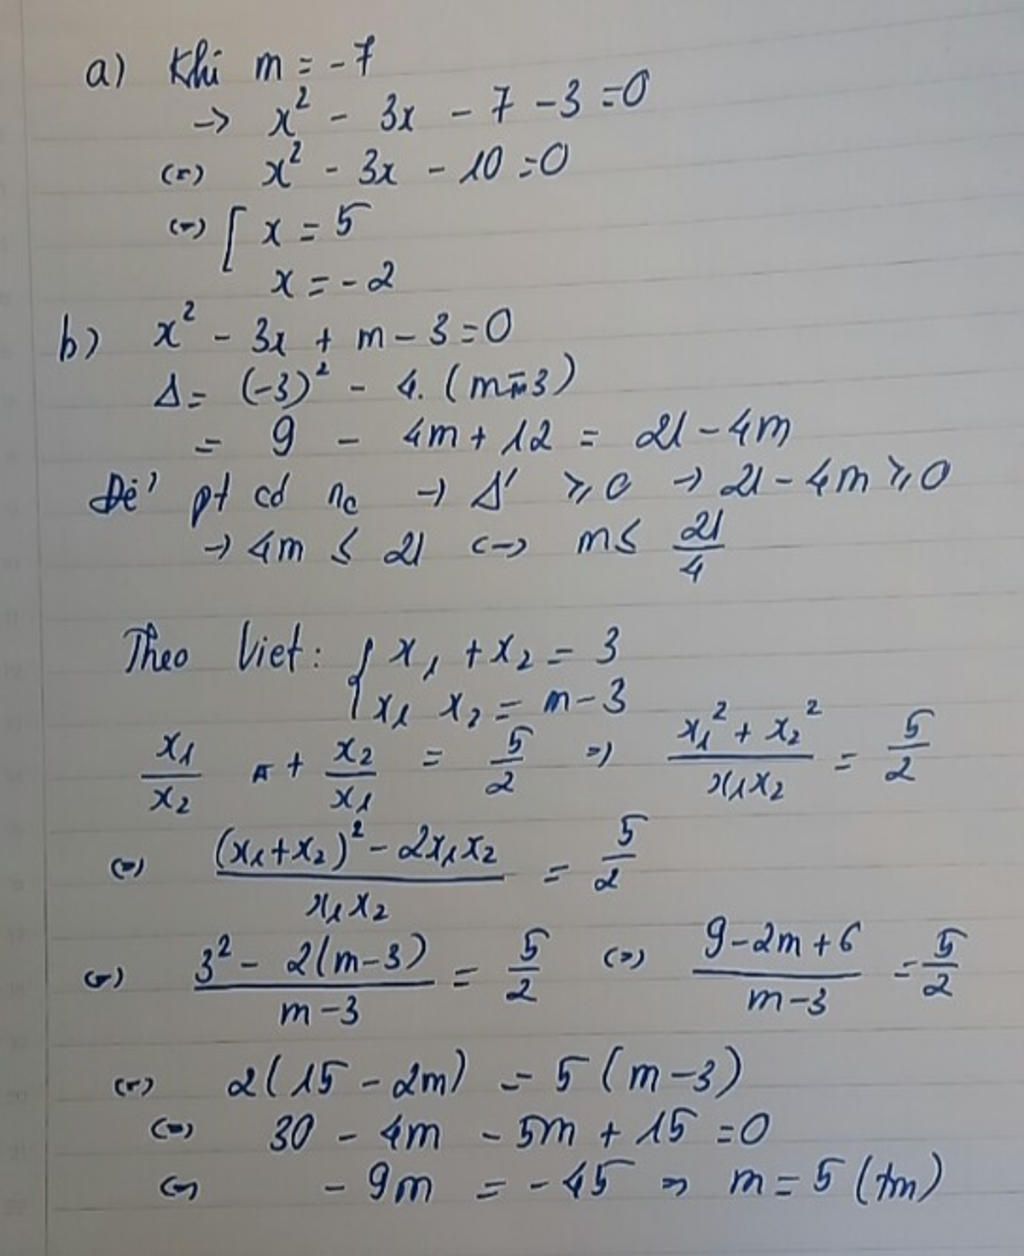 a) Khi m = -7
-> x² - 3x - 7 - 3 = 0
(=) x² - 3x - 10 = 0
(=) [ x = 5
x = -2
b) x² - 3x + m - 3 = 0
Δ = (-3)² - 4. (m-3)
= 9 - 4m + 12 = 21 - 4m
Để pt có no -> Δ' ≥ 0 -> 21 - 4m ≥ 0
-> 4m ≤ 21 <-> m ≤ 21/4
Theo Viet: { x₁ + x₂ = 3
x₁ x₂ = m - 3
x₁/x₂ + x₂/x₁ = 5/2 =) (x₁² + x₂²)/(x₁x₂) = 5/2
(=) ((x₁+x₂)² - 2x₁x₂)/(x₁x₂) = 5/2
(=) (3² - 2(m-3))/(m-3) = 5/2 (=) (9-2m+6)/(m-3) = 5/2
(=) 2(15 - 2m) = 5(m-3)
(=) 30 - 4m - 5m + 15 = 0
(=) - 9m = -45 => m = 5 (tm)